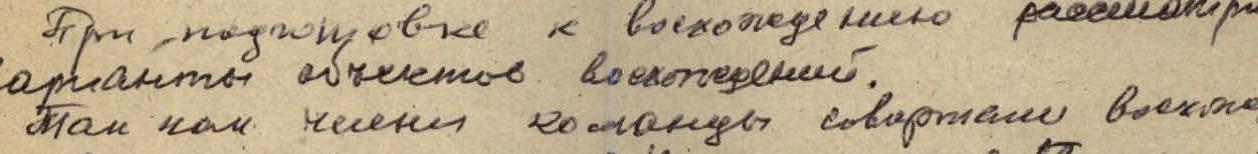 При подготовке к восхождению рассматри
арианты объектов восхождений.
Так как члены команды совершали восхо